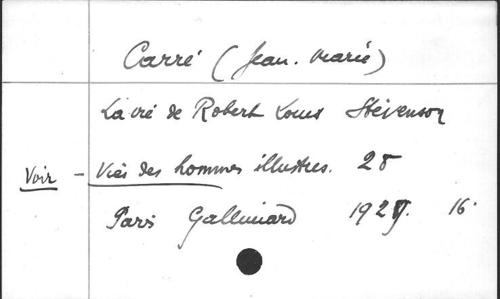 Carré (Jean-Marie)
La vie de Robert Louis Stevenson
Voir - Vies des hommes illustres. 28
Paris Gallimard 1929. 16°